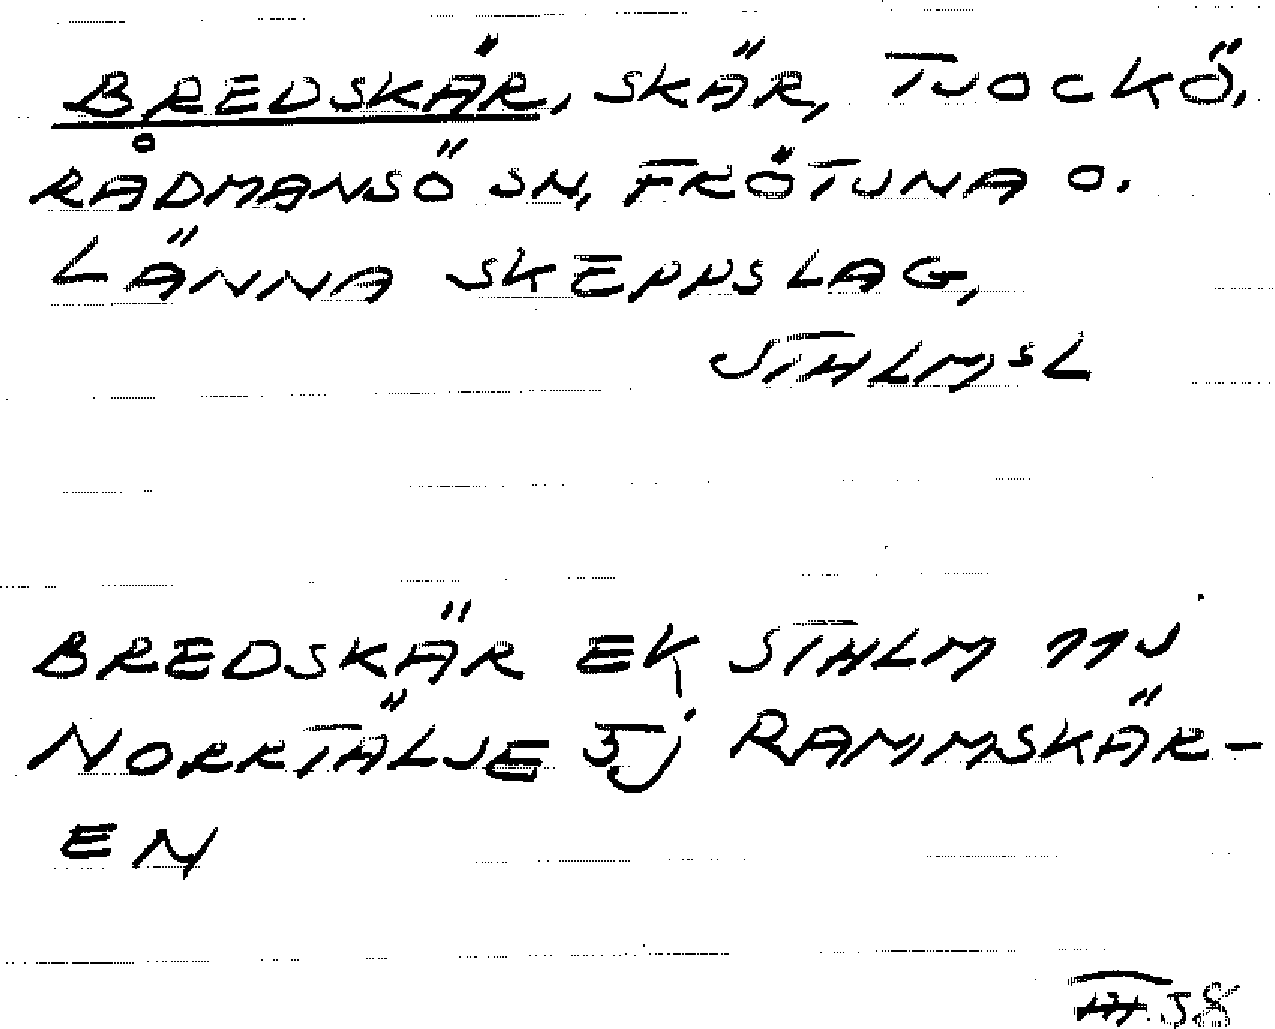 BREDSKÄR, SKÄR, TJOCKÖ,
RÅDMANSÖ SN, FRÖTUNA O.
LÄNNA SKEPPSLAG,
STHLMSL
BREDSKÄR EK STHLM 11J
NORRTÄLJE 5j RAMMSKÄR-
EN
58